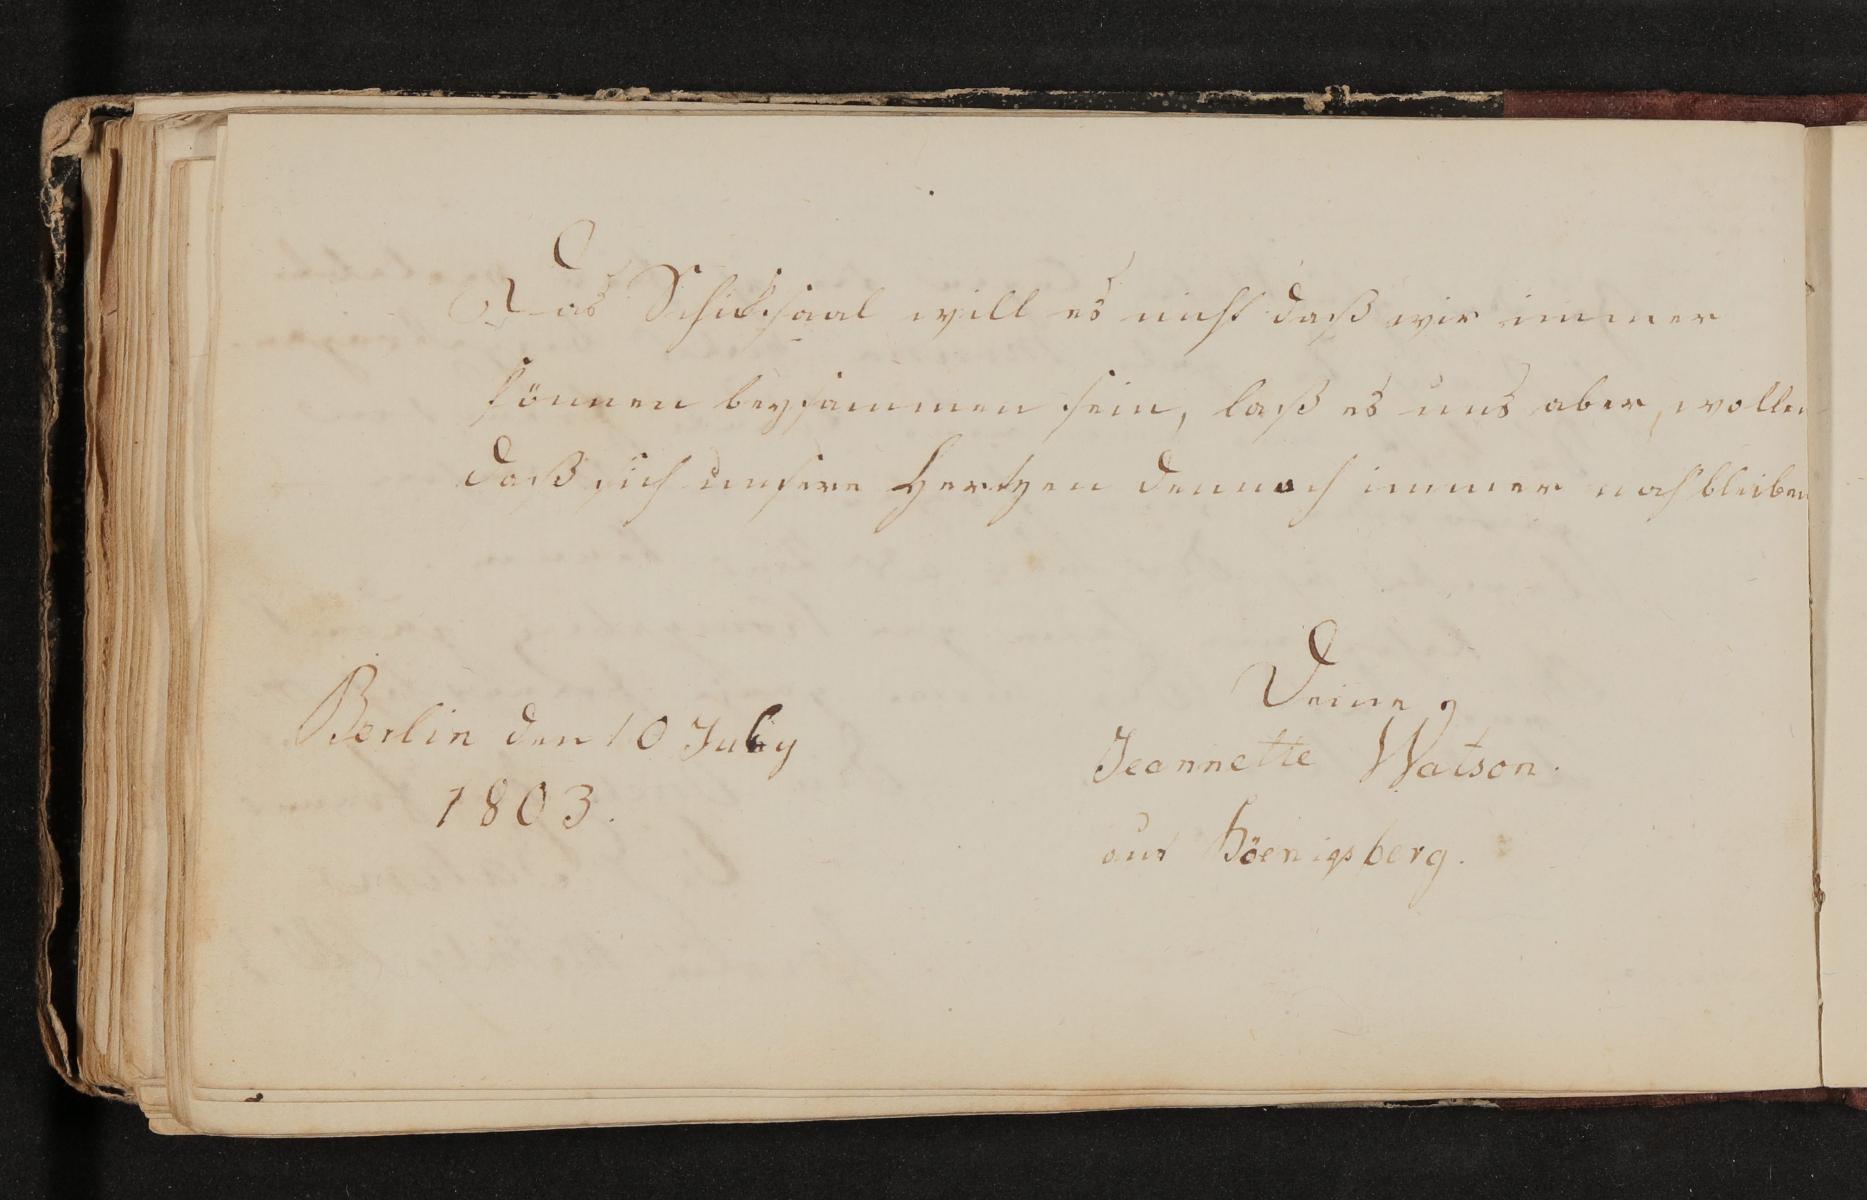 Das Schiksaal will es nicht daß wir immer
können beysammen sein, laß es uns aber, wollen
daß sich unsere Hertzen dennoch immer nah bleiben
Deine
Berlin den 10 July
Jeannette Watson.
1803.
aus Köenigsberg.